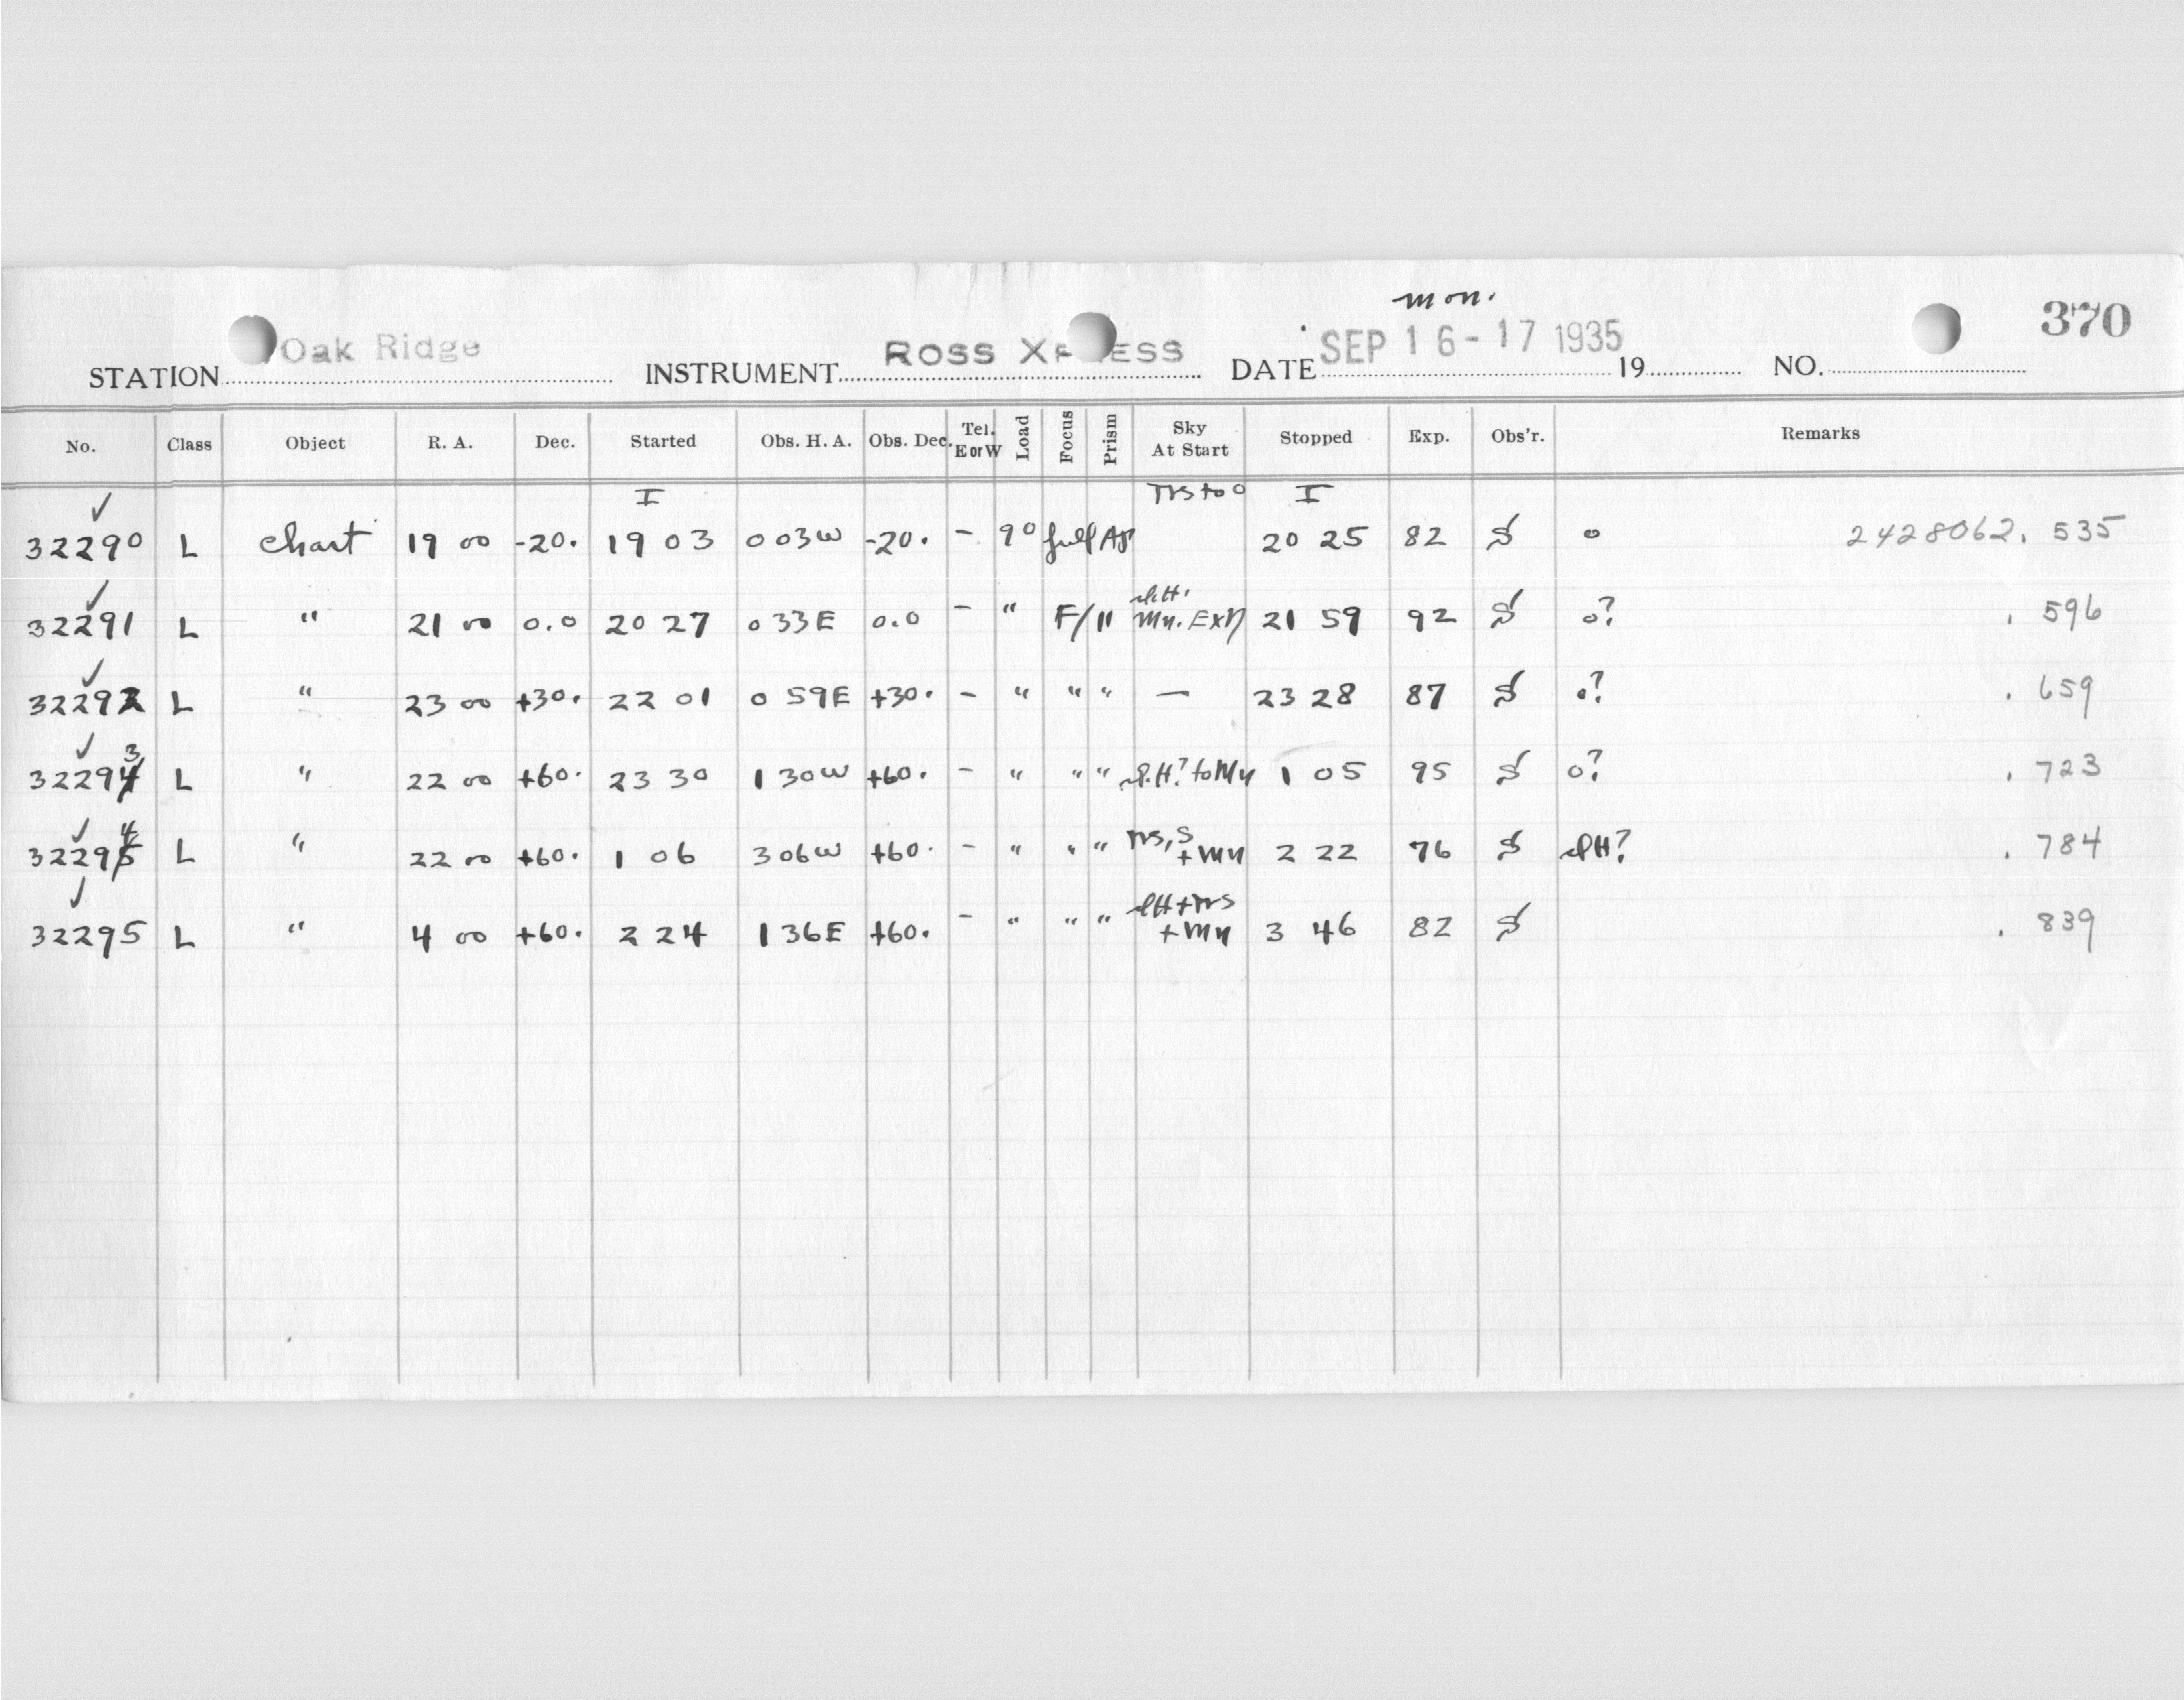 mon.
370
STATION Oak Ridge INSTRUMENT ROSS XPRESS DATE SEP 16-17 1935 19 NO.
No. Class Object R. A. Dec. Started Obs. H. A. Obs. Dec. Tel. E or W Load Focus Prism Sky At Start Stopped Exp. Obs'r. Remarks
I I
32290 L chart 19 00 -20. 19 03 003W -20. - 90 full 20 25 82 S o 2428062. 535
32291 L " 21 00 0.0 20 27 033E 0.0 - " F/ " 21 59 92 S o? . 596
32292 L " 23 00 +30. 22 01 0 59E +30. - " " " — 23 28 87 S o? . 659
32293 L " 22 00 +60. 23 30 1 30W +60. - " " " 1 05 95 S o? . 723
32294 L " 22 00 +60. 1 06 306W +60. - " " " 2 22 76 S . 784
32295 L " 4 00 +60. 2 24 1 36E +60. - " " " 3 46 82 S . 839